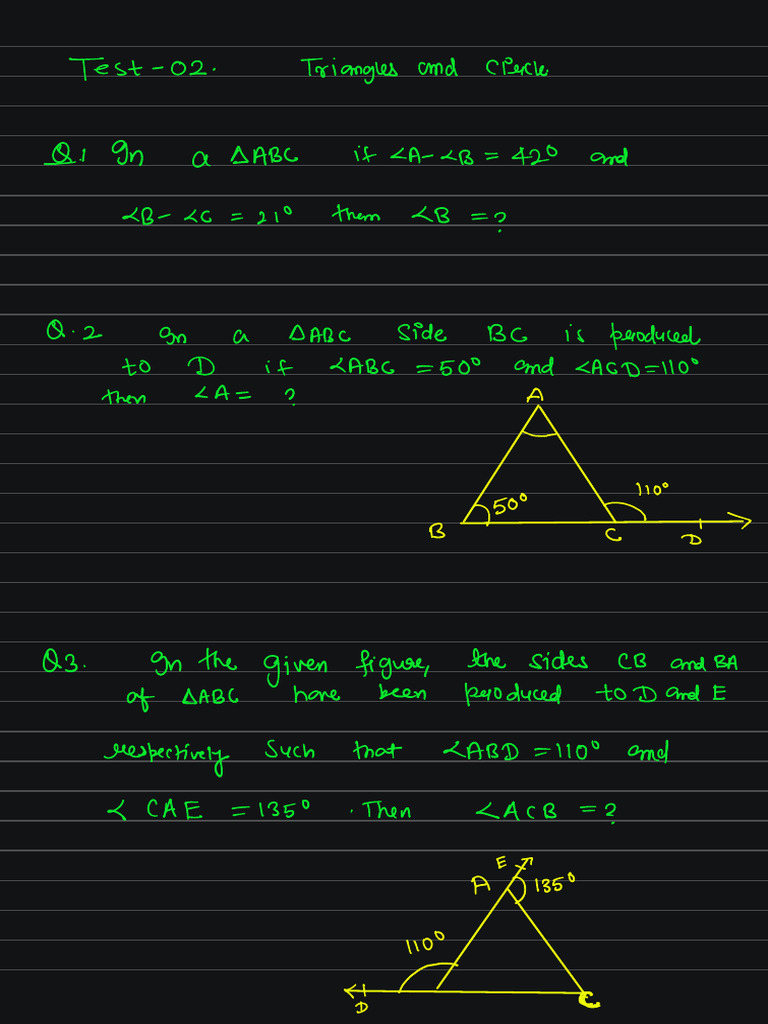 Test-02. Triangles and Circle
Q.1 In a △ABC if ∠A-∠B = 42° and
∠B- ∠C = 21° then ∠B = ?
Q.2 In a △ABC Side BC is produced
to D if ∠ABC = 50° and ∠ACD = 110°
then ∠A = ?
A
110°
50°
B C D
Q3. In the given figure, the sides CB and BA
of △ABC have been produced to D and E
respectively Such that ∠ABD = 110° and
∠ CAE = 135° . Then ∠ACB = ?
E
A 135°
110°
D C